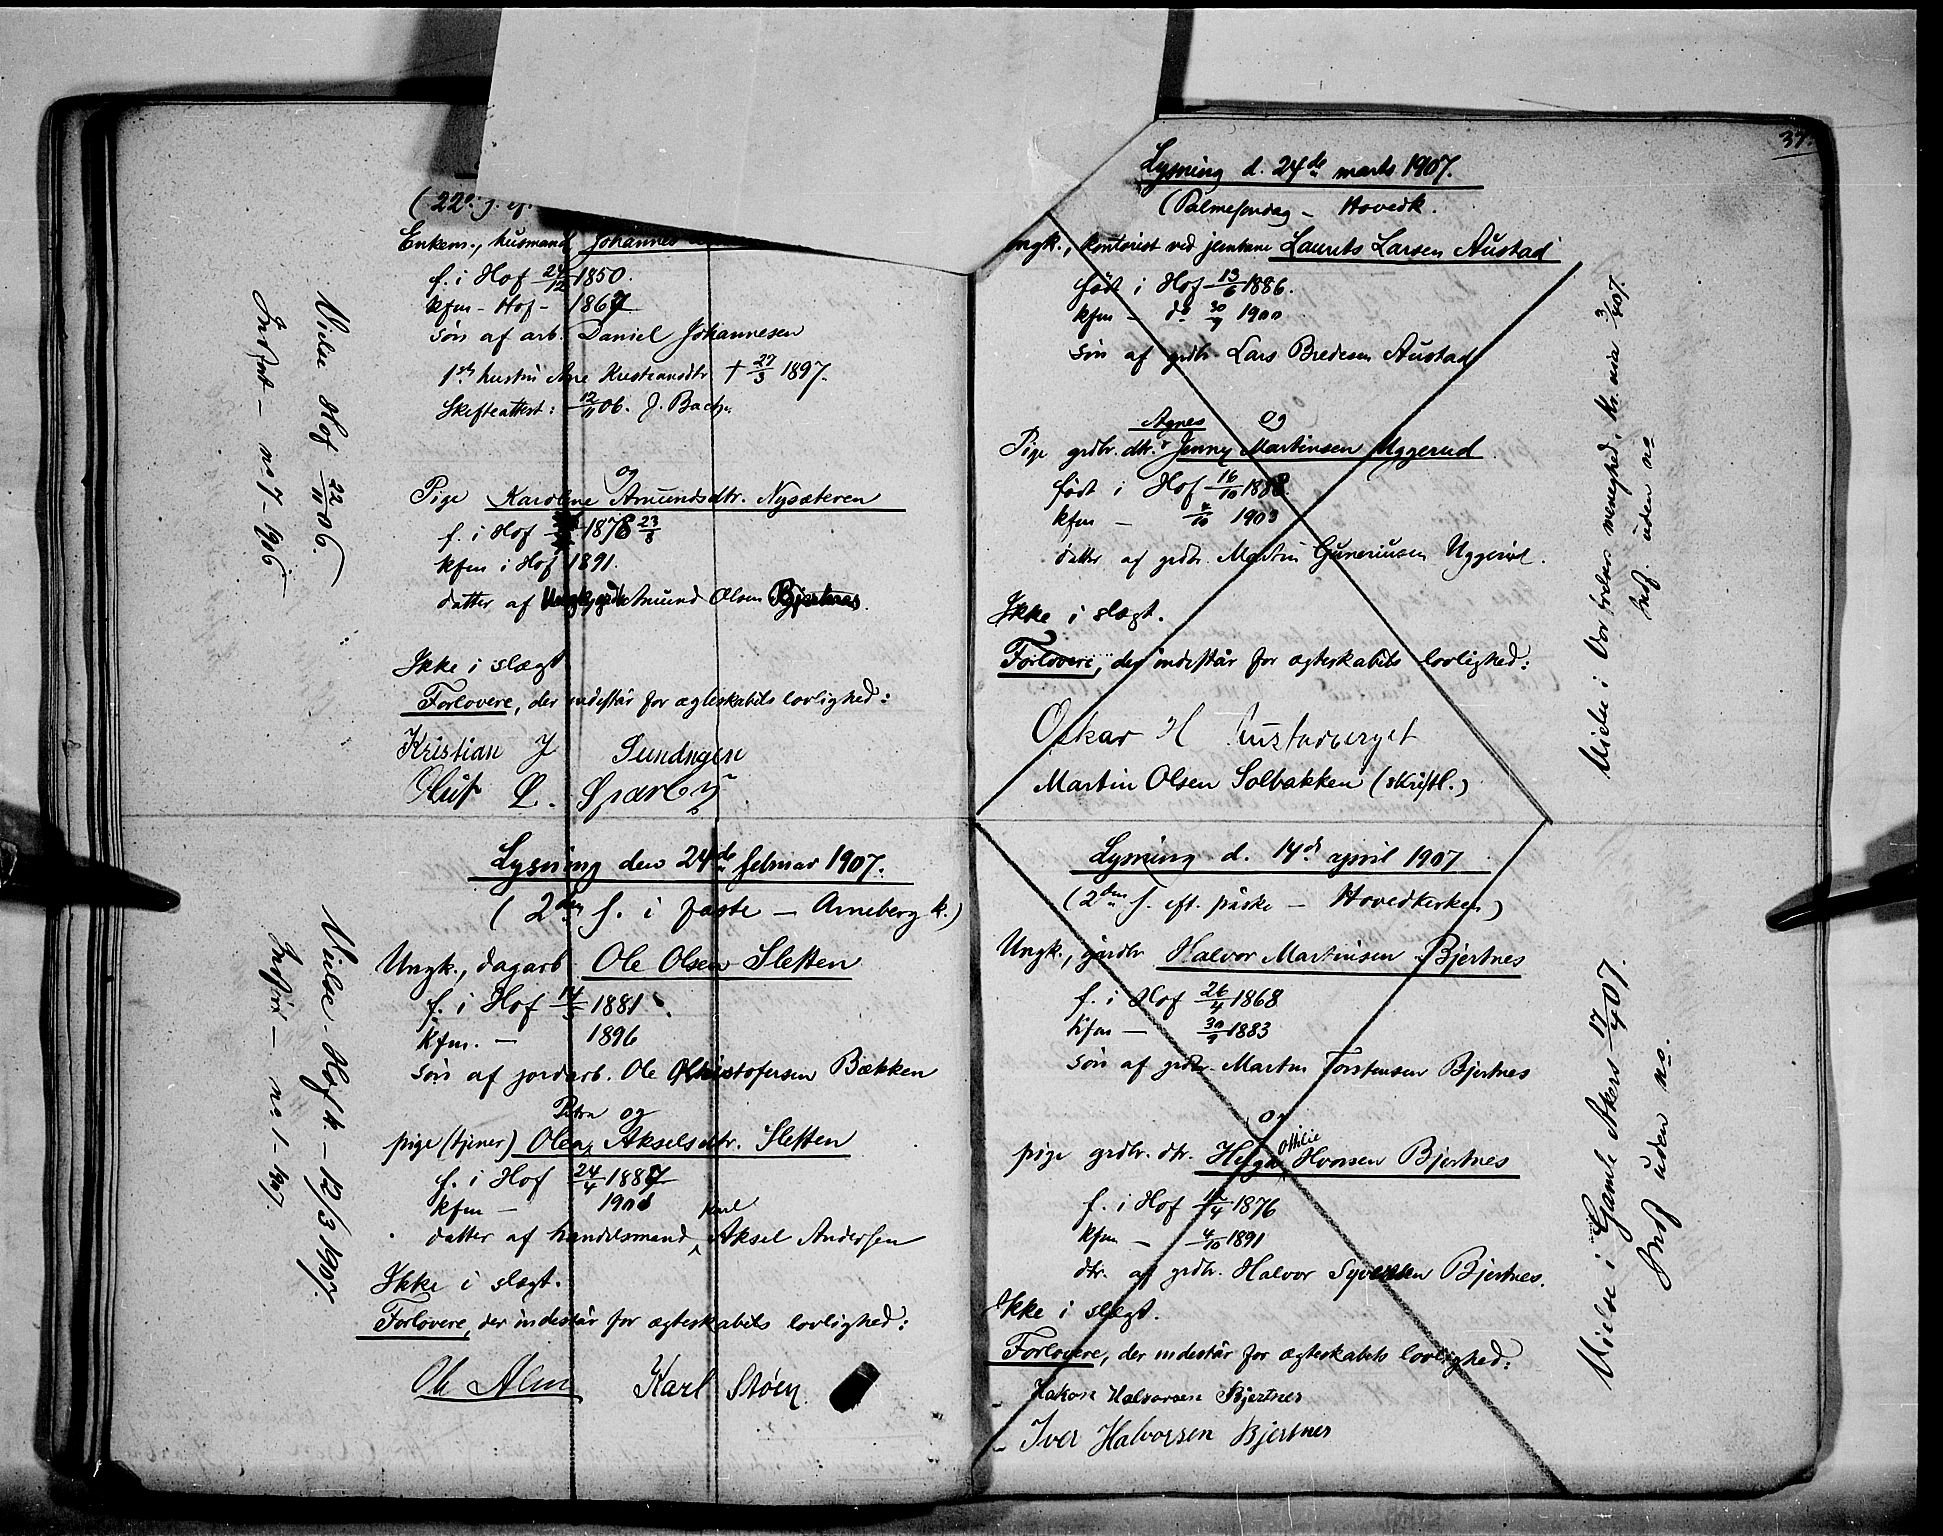 Enkem., husmand Johannes
f. i Hof 24/12 1850.
kfm - Hof - 1867
søn af arb. Daniel Johannesen
1ste hustru Ane Kristiansdtr. † 27/3 1897.
Skifteattest: 12/11 06. J. Bache
og
Pige Karoline Amundsdtr. Nysæteren
f. i Hof 1878 23/8
kfm i Hof 1891.
datter af Amund Olsen Bjertnæs.
Ikke i slægt
Forlovere, der indestår for ægteskabets lovlighed:
Kristian J Sundmoen
Oluf L. Sparby
Vielse Hof 22/11 06.
Indført - no 7 - 1906
Lysning den 24de februar 1907.
(2den s. i faste - Arneberg k.)
Ungk., dagarb. Ole Olsen Sletten
f. i Hof 1881
kfm. - 1896
søn af jordarb. Ole Kristofersen Bækken
Petra og
pige (tjener) Olea Akselsdtr. Sletten
f. i Hof 24/4 1887
kfm -
Karl
datter af handelsmand Aksel Andersen
Ikke i slægt.
Forlovere, der indestår for ægteskabets lovlighed:
Ole Alm Karl Støen
Vielse Hof k. - 12/3 1907.
Indført - no 1 - 1907.
37.
Lysning d. 24de marts 1907.
(Palmesøndag - Hovedk.
Ungk., kontorist ved jernbane Laurits Larsen Austad
født i Hof 13/6 1886.
kfm - do 30/9 1900
søn af grdbr. Lars Bredesen Austad
Agnes og
Pige grdbr. dtr. Jenny Martinsen Uggerud
født i Hof 16/10 1888.
kfm - 1903
datter af grdbr. Martin Guneriusen Uggerud.
Ikke i slægt.
Forlovere, der indestår for ægteskabets lovlighed:
Oskar H Austadberget
Martin Olsen Solbakken (skriftl.)
Vielse i Vor frelsers menighed, Kr.ania 3/4 07.
Indf. uden no
Lysning d. 14de april 1907
(2den s. eft. påske - Hovedkirken)
Ungk., gårdbr Halvor Martinsen Bjertnes
f. i Hof 26/4 1868
kfm - 30/9 1883
søn af grdbr. Martin Torstensen Bjertnes
og
Othilie
pige grdbr. dtr. Helga Hvorsen Bjertnes
f. i Hof 12/4 1876
kfm - 4/10 1891
dtr. af grdbr. Halvor Syversen Bjertnes.
Ikke i slægt.
Forlovere, der indestår for ægteskabets lovlighed:
- Hakon Halvorsen Bjertnes
- Iver Halvorsen Bjertnes
Vielse i Gamle Akers 17/4 07.
Indf uden no.